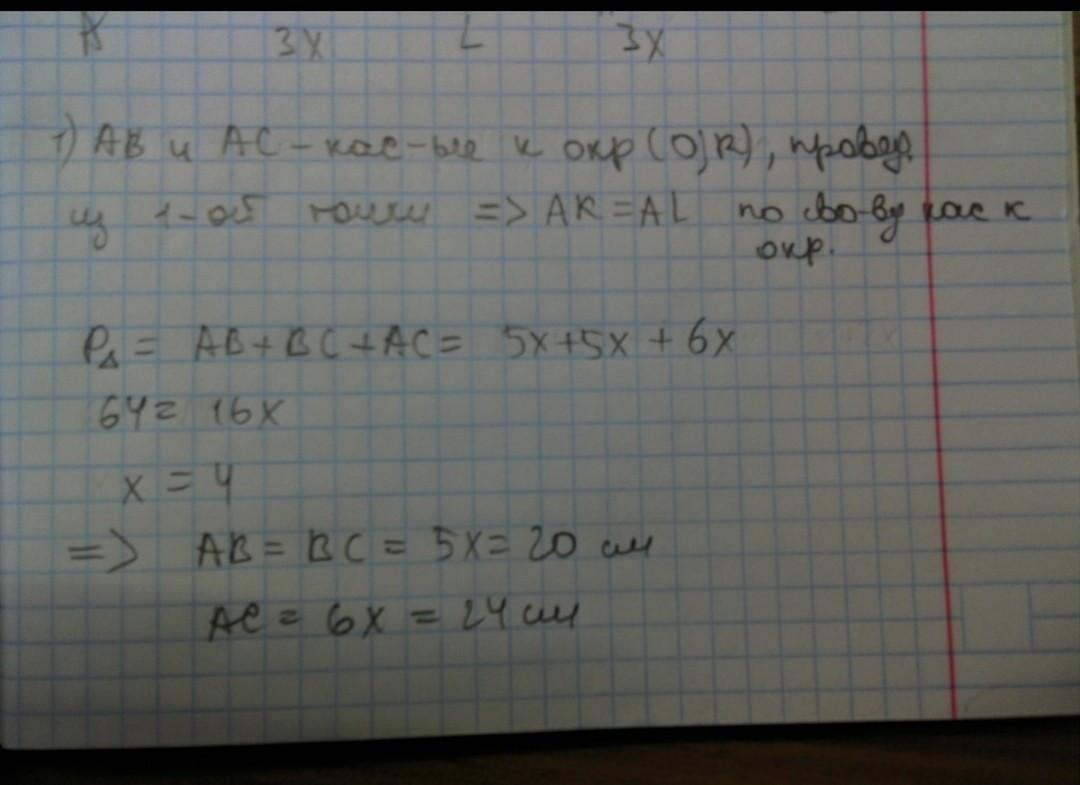 A 3x L 3x
1) AB и AC - кас-ые к окр (O;R), провед.
из 1-ой точки => AK = AL по сво-ву кас к
окр.
P△ = AB + BC + AC = 5x + 5x + 6x
64 = 16x
x = 4
=> AB = BC = 5x = 20 см
AC = 6x = 24 см